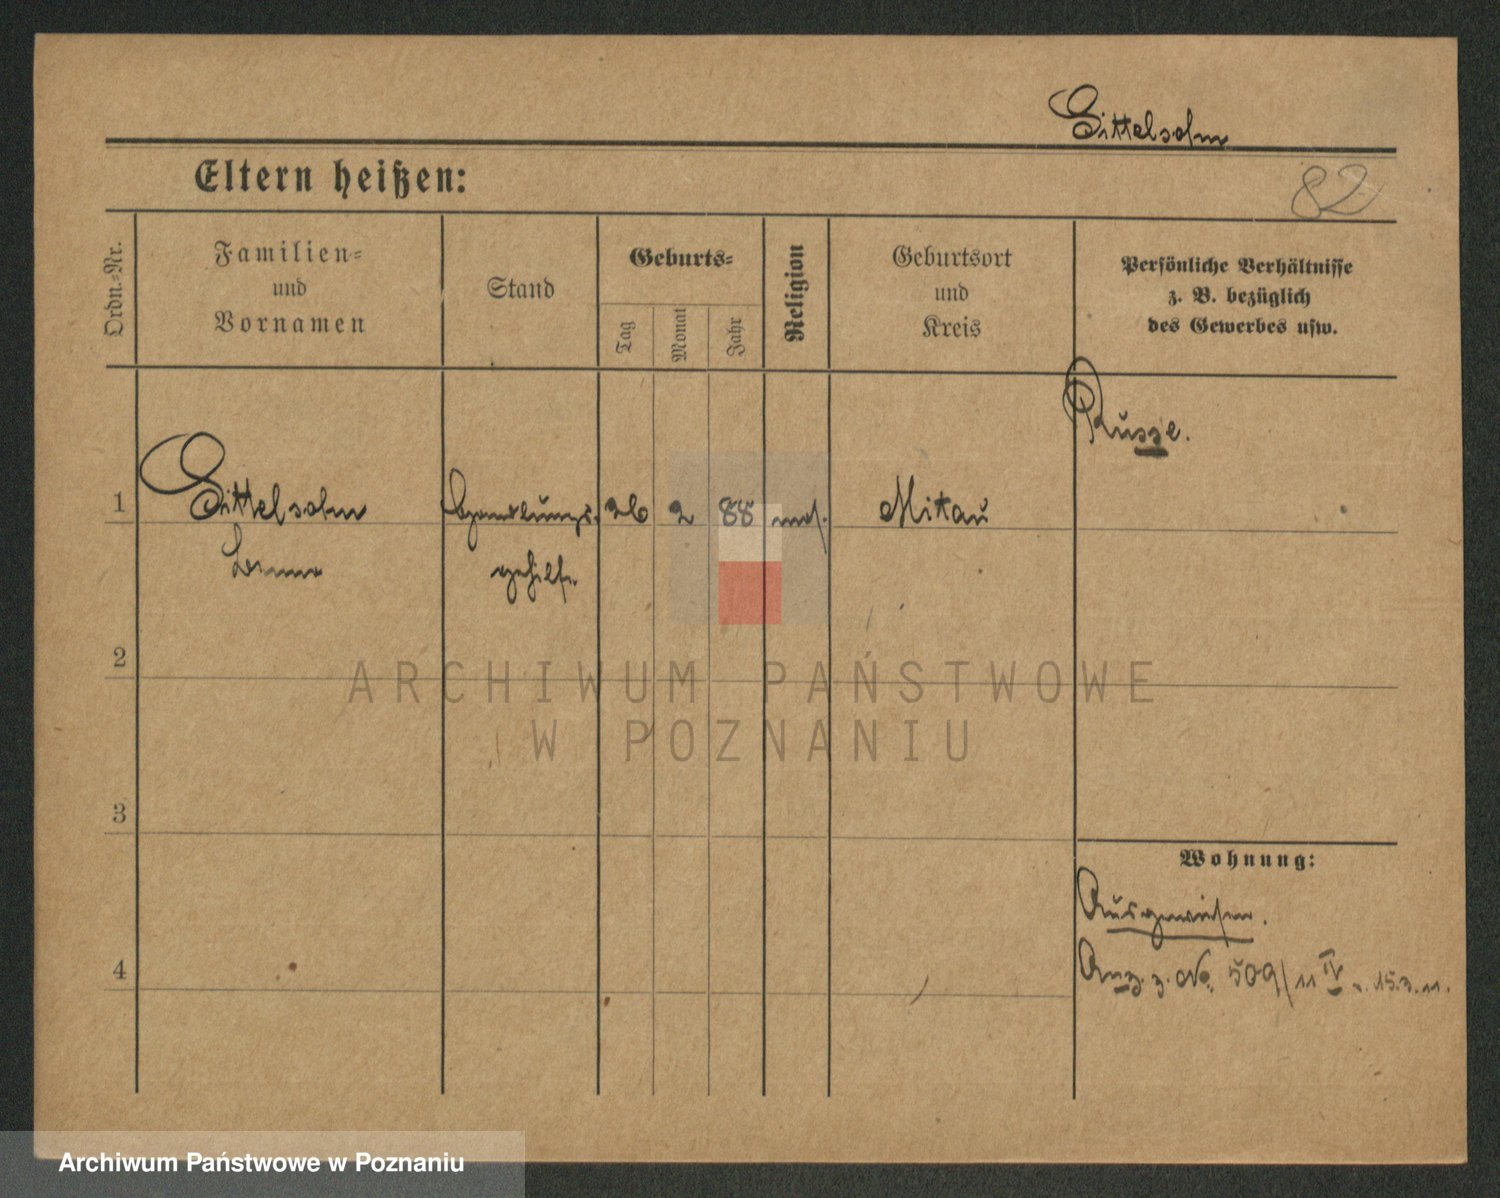 Gittelsohn
Eltern heißen:
82
Ordn.-Nr.
Familien-
und
Vornamen
Stand
Geburts-
Tag
Monat
Jahr
Religion
Geburtsort
und
Kreis
Persönliche Verhältnisse
z. B. bezüglich
des Gewerbes usw.
Russe.
1
Gittelsohn
Handlungs-
26
2
88
mos.
Mitau
gehilfe
2
3
4
Wohnung:
Ausgewiesen.
Anz. z. No. 509/11 IV v. 15.3.11.
ARCHIWUM PAŃSTWOWE
W POZNANIU
Archiwum Państwowe w Poznaniu